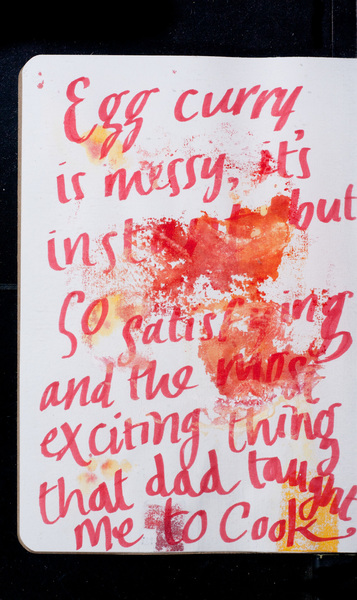 Egg curry
is messy, it's
but
So satisfying
and the most
exciting thing
that dad taught
me to Cook